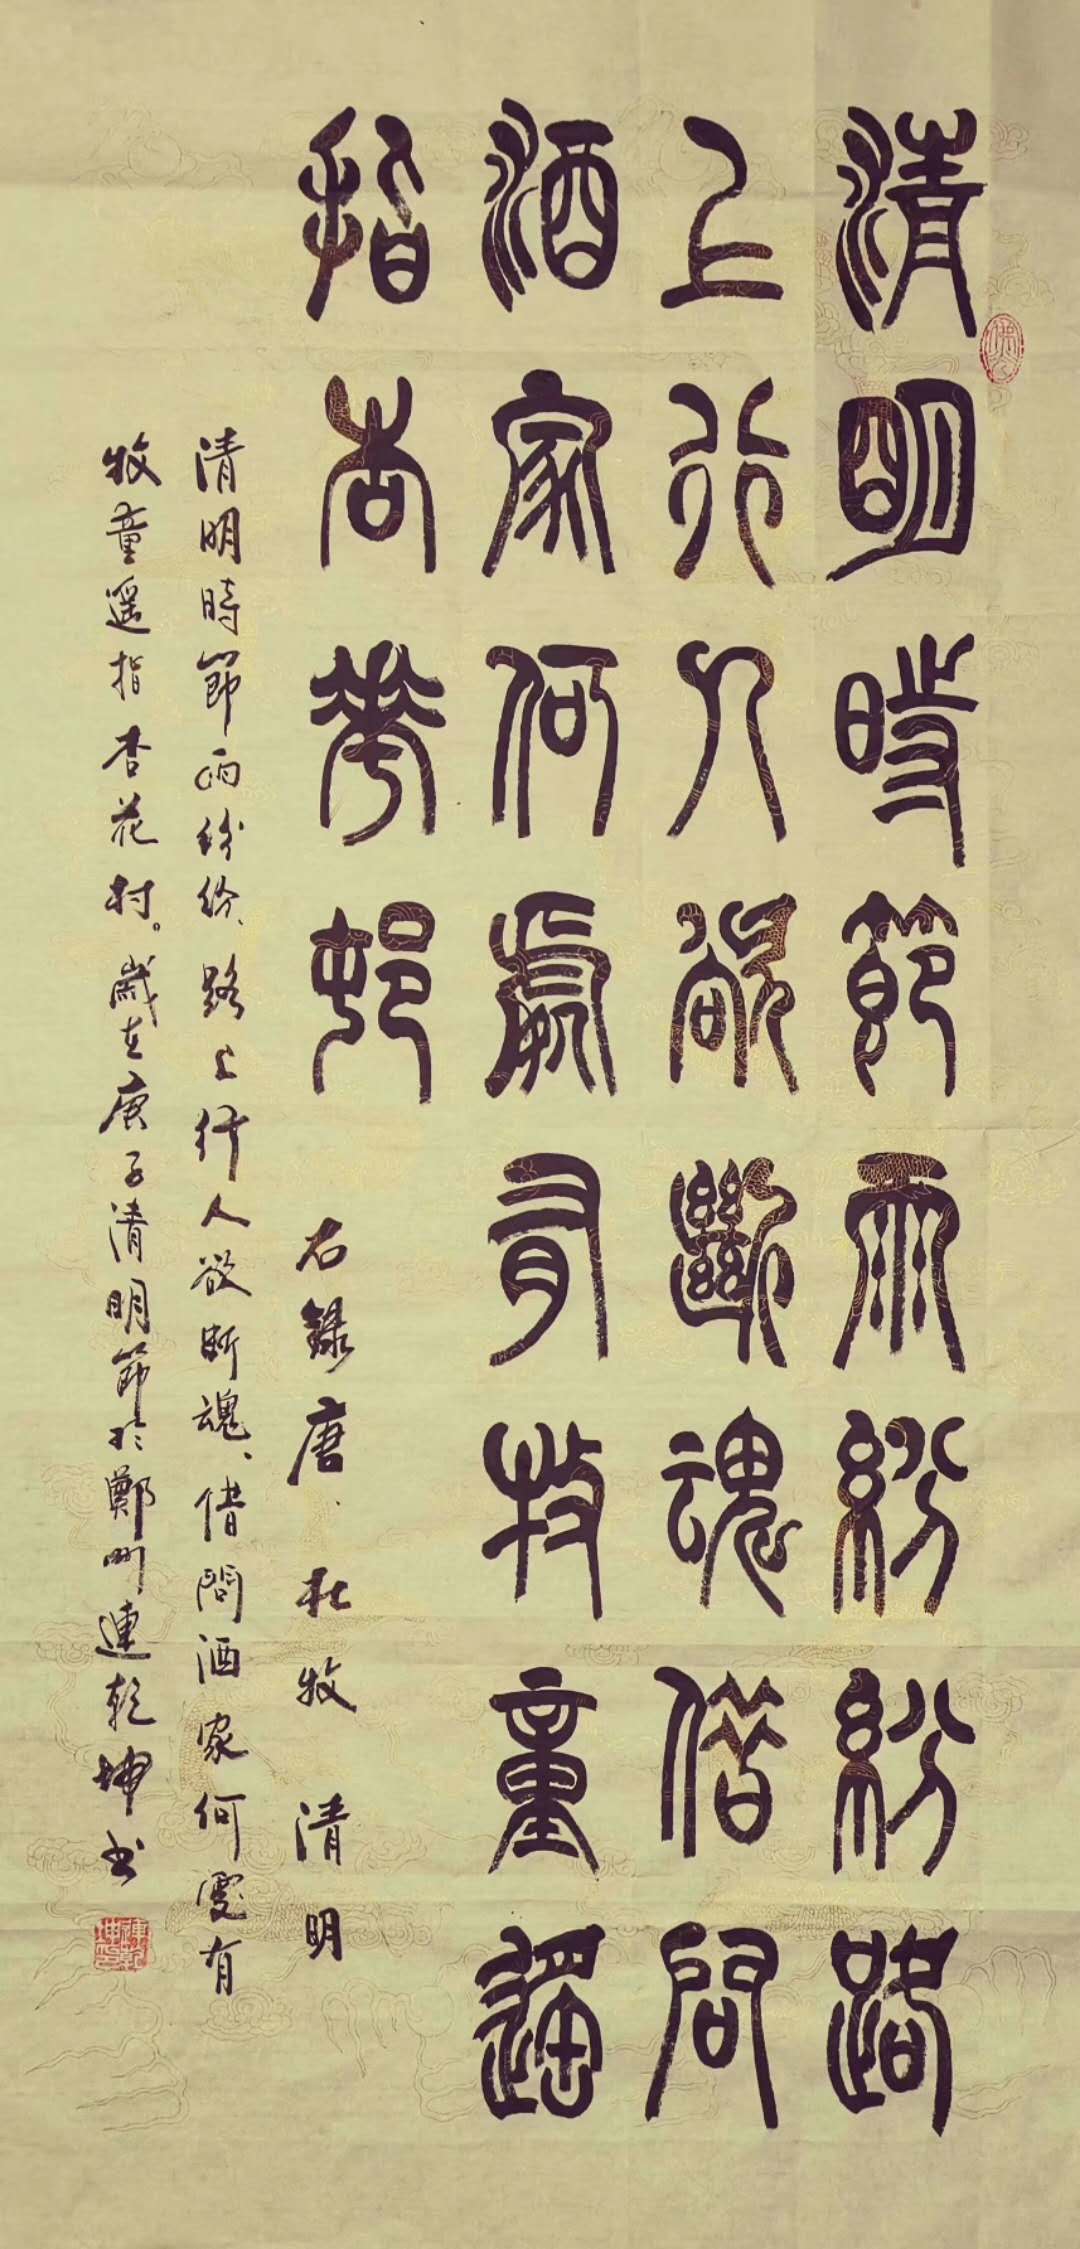 清明時節雨紛紛路
上行人欲斷魂借問
酒家何處有牧童遥
指杏花邨
右錄唐.杜牧 清明
清明時節雨紛紛、路上行人欲断魂、借問酒家何處有
牧童遥指杏花村。歲在庚子清明節於鄭州連乾坤书